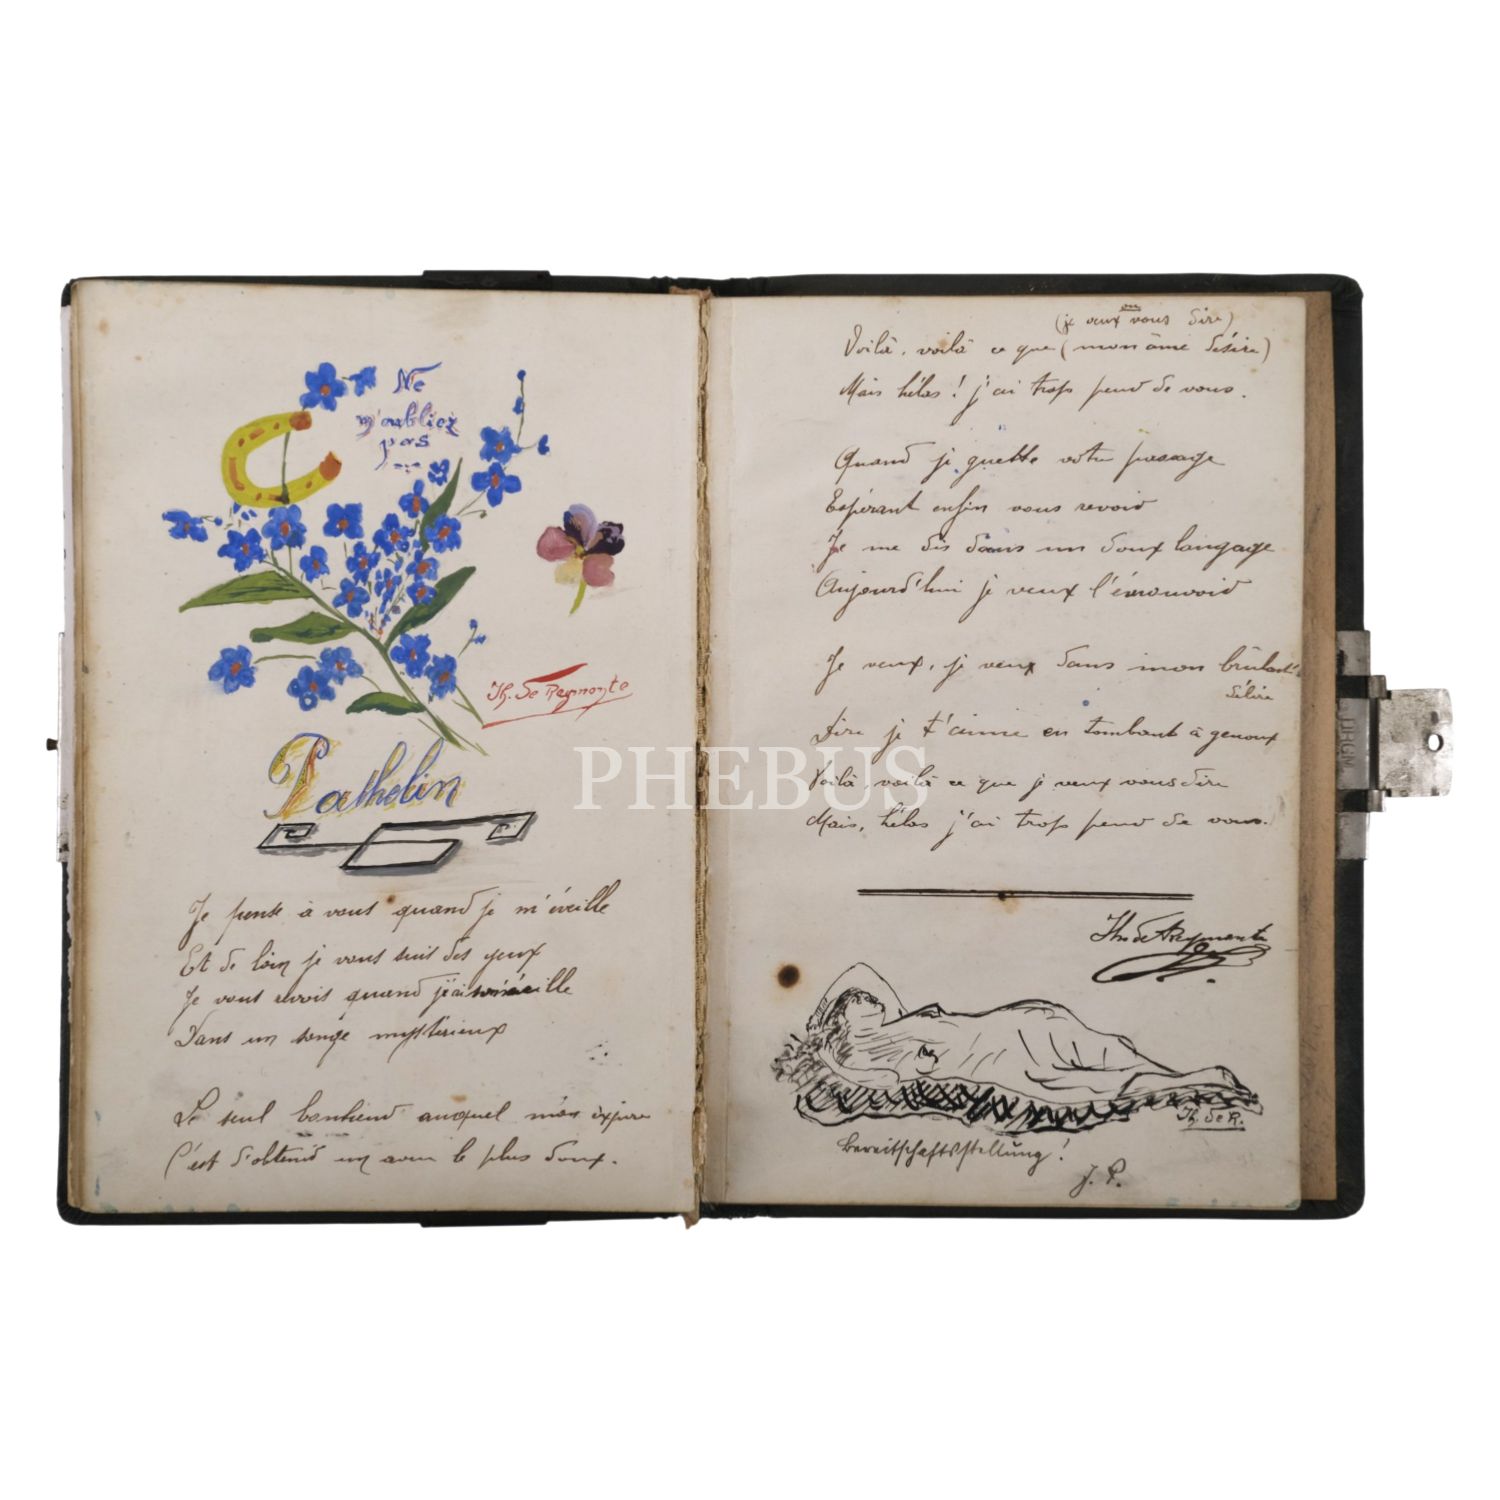 Ne
m'oubliez
pas
Th. de Reymonte
Pathelin
Je pense à vous quand je m'éveille
Et de loin je vous suis des yeux
Je vous revois quand je
Dans un songe mystérieux
Le seul bonheur auquel mon
C'est d'obtenir un aveu le plus doux.
ou
(je veux vous dire)
Voilà, voilà ce que (mon âme désire)
Mais hélas! j'ai trop peur de vous.
Quand je guette votre passage
Espérant enfin vous revoir
Je me dis dans un doux langage
Aujourd'hui je veux l'émouvoir
Je veux, je veux dans mon brûlant
délire
Dire je t'aime en tombant à genoux
Voilà, voilà ce que je veux vous dire
Mais, hélas j'ai trop peur de vous.
Th. de Reymonte
Th. de R.
Bereitschaftsstellung!
J. P.
DRGM
PHEBUS